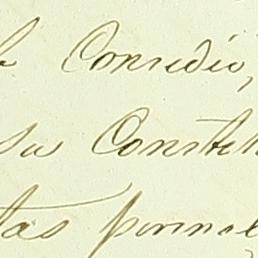 Consedió,
su Constit
tas formal